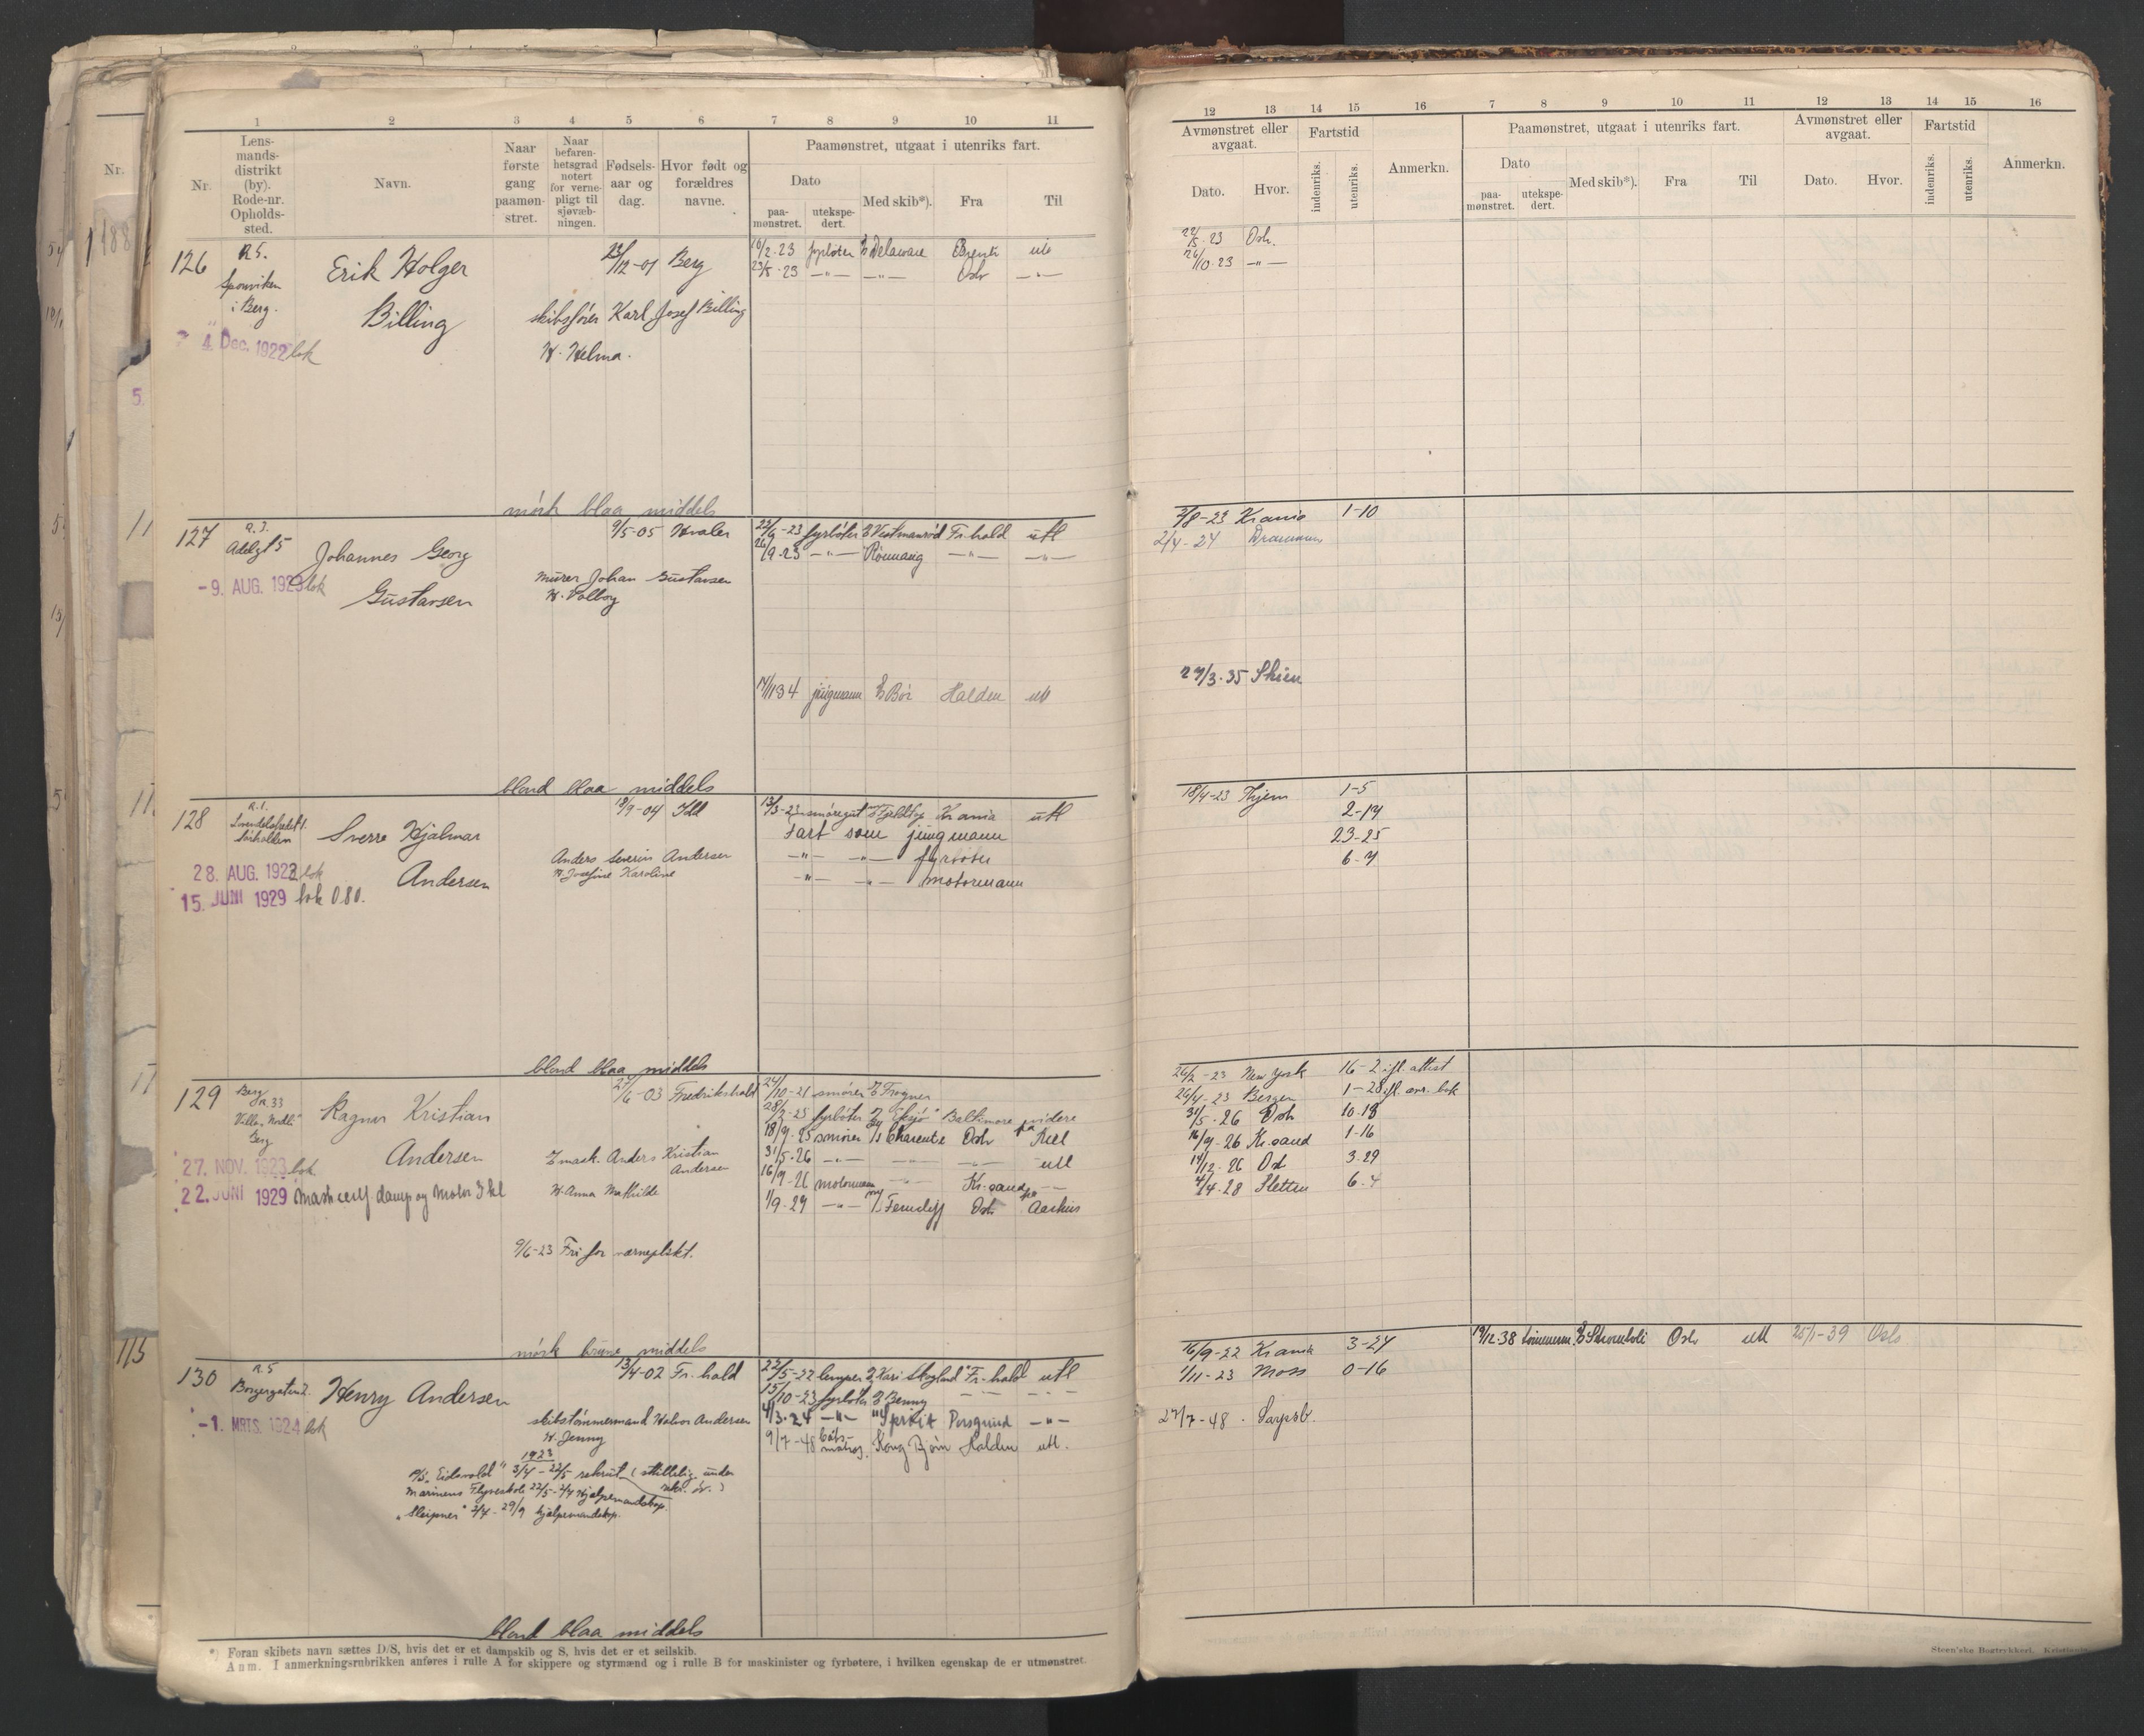 1 2 3 4 5 6 7 8 9 10 11
Nr.
Lens-
mands-
distrikt
(by).
Rode-nr.
Opholds-
sted.
Navn.
Naar
første
gang
paamøn-
stret.
Naar
befaren-
hetsgrad
notert
for verne-
pligt til
sjøvæb-
ningen.
Fødsels-
aar og
dag.
Hvor født og
forældres
navne.
Paamønstret, utgaat i utenriks fart.
Dato
paa-
mønstret.
utekspe-
dert.
Med skib*).
Fra
Til
126 R5. Erik Holger 23/12-01 Berg 10/2-23 fyrbøter Delaware utl
Sponviken 23/5-23 -"- -"- Osl -"-
i Berg. Billing skibsfører Karl Josef Billing
4. Dec. 1922 bok H. Helma.
mörk blaa middels
127 R.3. Johannes Georg 9/5-05 Hvaler 22/6-23 fyrbøter Vestmanrød Fr.hald utl
Adelgt 5 26/9-23 -"- -"- -"-
murer Johan Gustavsen
-9. AUG. 1923 bok Gustavsen H. Valborg
1/11 34 jungmann Bör Halden utl
blond blaa middels
128 R.1. Sverre Hjalmar 18/9-04 Idd 13/3-23 smøregut Kr ania utl
Fart som jungmann
Anders Severin Andersen -"- -"- fyrbøter
28. AUG. 1922 bok Andersen H. Josefine Karoline -"- -"- motormann
15. JUNI 1929 bok 080.
blond blaa middels
129 Berg R.33 Ragnar Kristian 27/6-03 Fredrikshald 24/10-21 smører Frogner
Villa "Nordli" 28/2-25 fyrbøter "Eksjö" Baltimore videre
Berg 18/9-25 smører Charente Osl
Andersen mask. Anders Kristian Andersen 31/5-26 -"- utl
27. NOV. 1923 bok 16/9-26 motormann Kr.sand
22. JUNI 1929 Mask cert damp og Motor 3 kl H. Anna Mathilde 1/9-27 -"- Ferncliff Osl Aarhus
9/6-23 Fri for vernepligt.
mörk brune middels
130 R.5 Henry Andersen 13/4-02 Fr.hald 22/5-22 lemper Kari Skogland Fr.hald utl
Borgergaten 2. 15/10-23 fyrbøter Benny -"- -"-
-1. MRTS. 1924 bok skibstømmermand Halvor Andersen 4/3-24 -"- Porsgrund -"-
H. Jenny 9/7-48 båts-matros. Kong Bjørn Halden utl.
1923
P/S. "Eidsvold" 3/4 - 22/5 rekrut (
Marinens Flyveskole 22/5 - 2/7 Hjelpemandskap.
"Sleipner" 2/7 - 29/9 hjelpemandskap.
blond blaa middels
*) Foran skibets navn sættes D/S, hvis det er et dampskib og S, hvis det er et seilskib.
Anm. I anmerkningsrubrikken anføres i rulle A for skippere og styrmænd og i rulle B for maskinister og fyrbøtere, i hvilken egenskap de er utmønstret.
12 13 14 15 16 7 8 9 10 11 12 13 14 15 16
Avmønstret eller
avgaat.
Dato. Hvor.
Fartstid
indenriks. utenriks.
Anmerkn.
Paamønstret, utgaat i utenriks fart.
Dato
paa-
mønstret.
utekspe-
dert.
Med skib*).
Fra
Til
Avmønstret eller
avgaat.
Dato. Hvor.
Fartstid
indenriks. utenriks.
Anmerkn.
22/5-23 Osl.
26/10-23 -"-
2/8-23 Krania 1-10
2/4-24 Drammen
27/3-35 Skien
18/4-23 Hjem 1-5
2-14
23-25
6-7
26/2-23 New York 16-2 ifl. attest
26/4-23 Bergen 1-28 ifl. avr. bok
31/5-26 Osl 10-18
16/9-26 Kr.sand 1-16
14/12-26 Osl 3-29
4/4-28 Sletten 6-4
16/9-22 Krania 3-24 19/12-38 tømmerm. Stromboli Oslo utl 25/1-39 Oslo
1/11-23 Moss 0-16
27/7-48. Sarpsb.
Steen'ske Bogtrykkeri. Kristiania